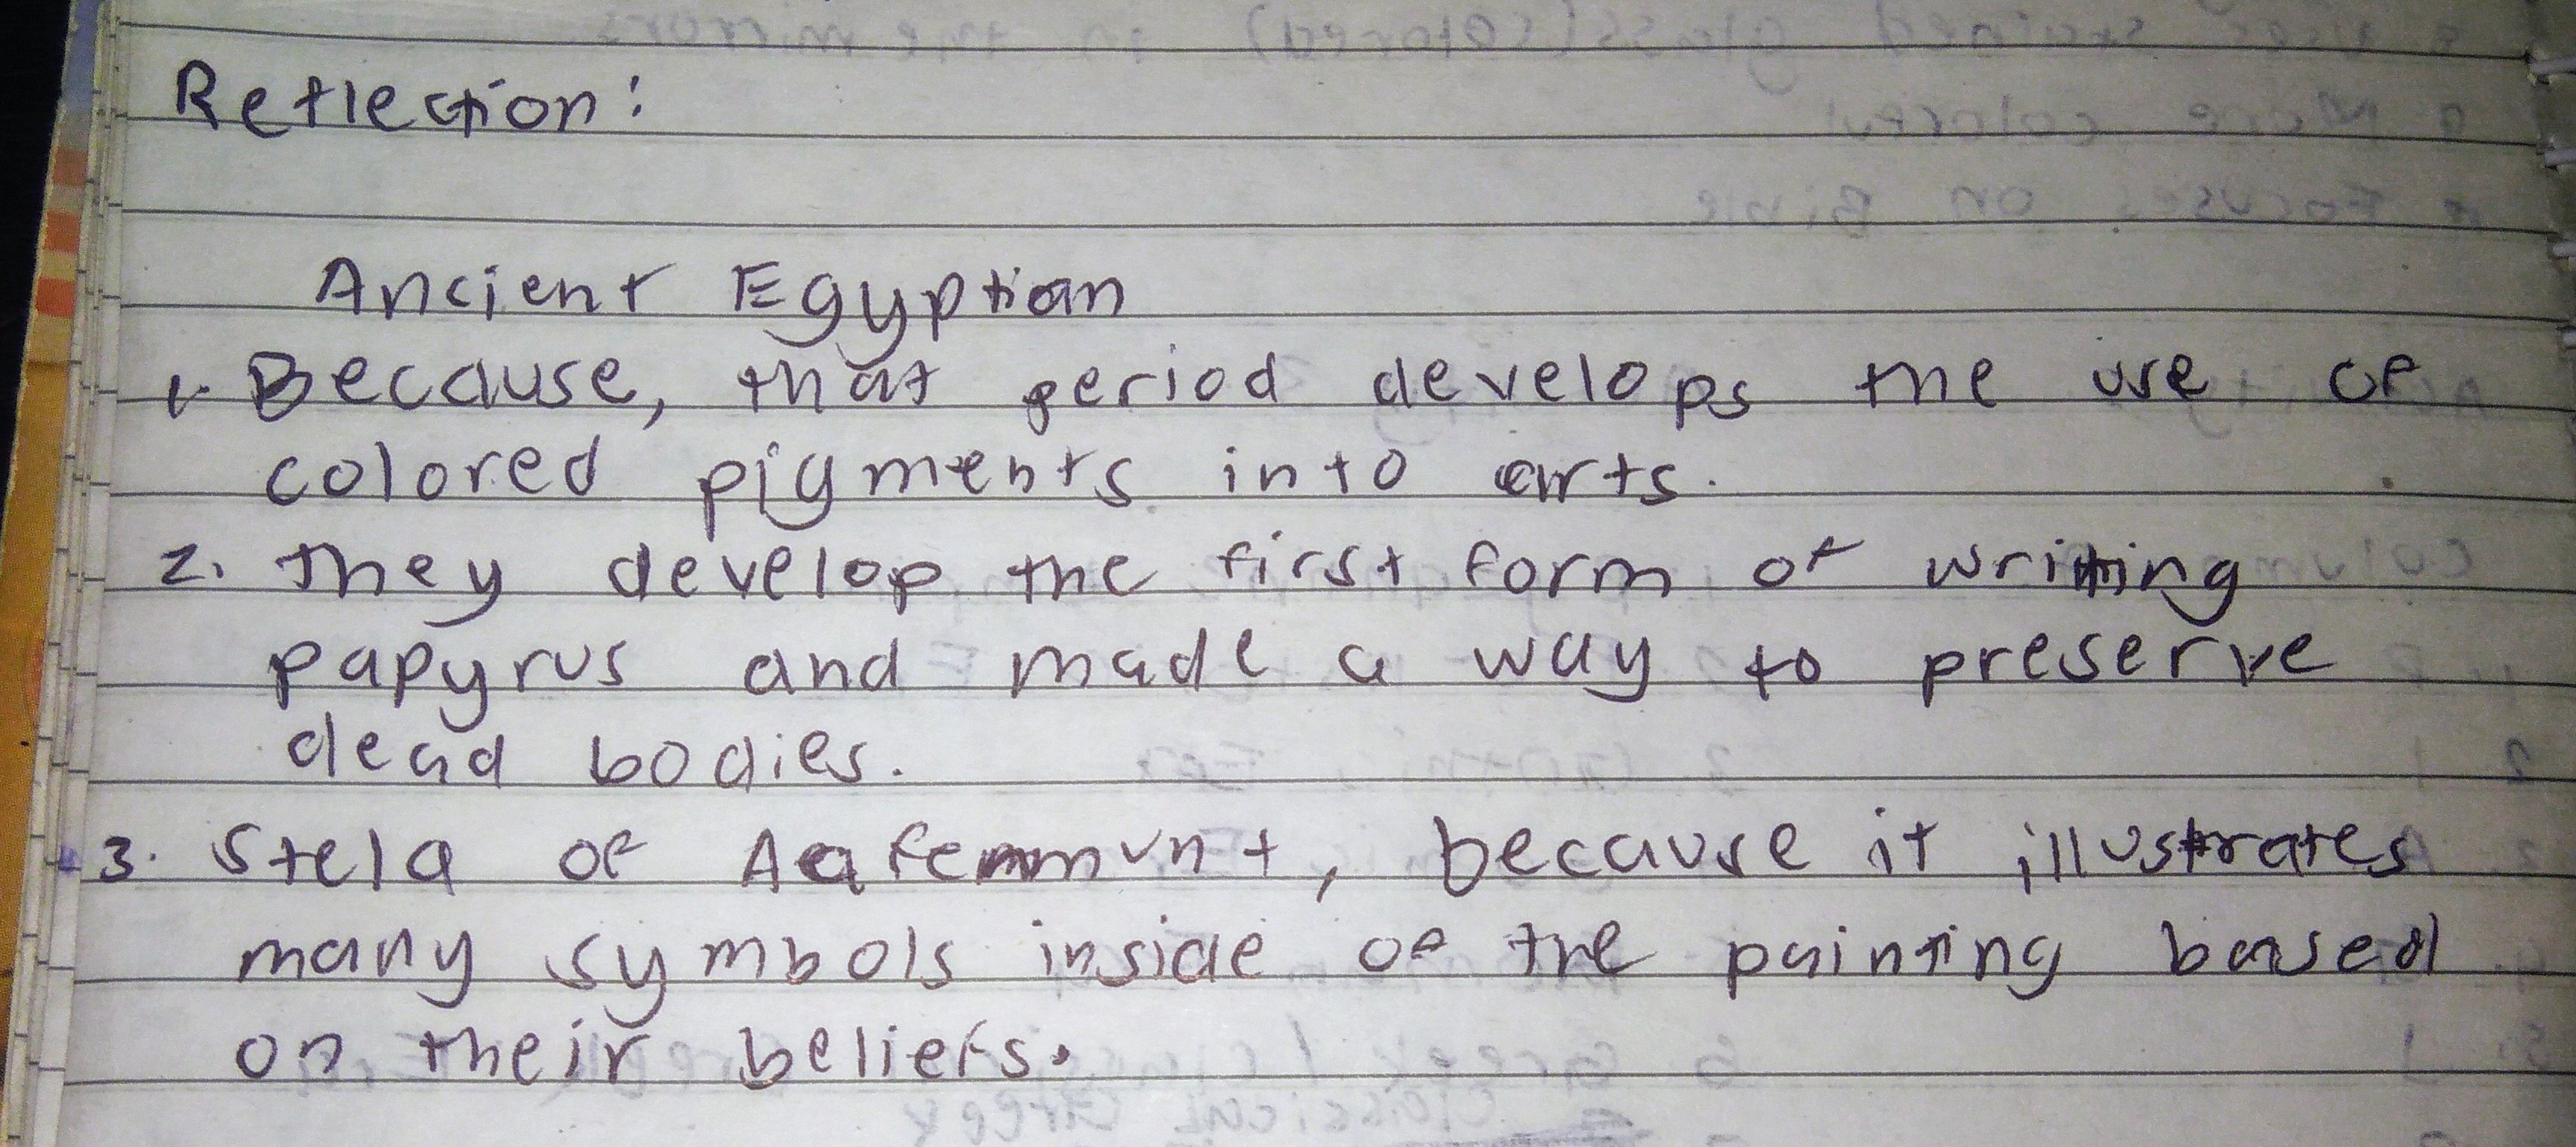 Reflection:
Ancient Egyptian
1. Because, that period develops the use of
colored pigments into arts.
2. They develop the first form of writing
papyrus and made a way to preserve
dead bodies.
3. Stela of Aafenmunt, because it illustrates
many symbols inside of the painting based
on their beliefs.